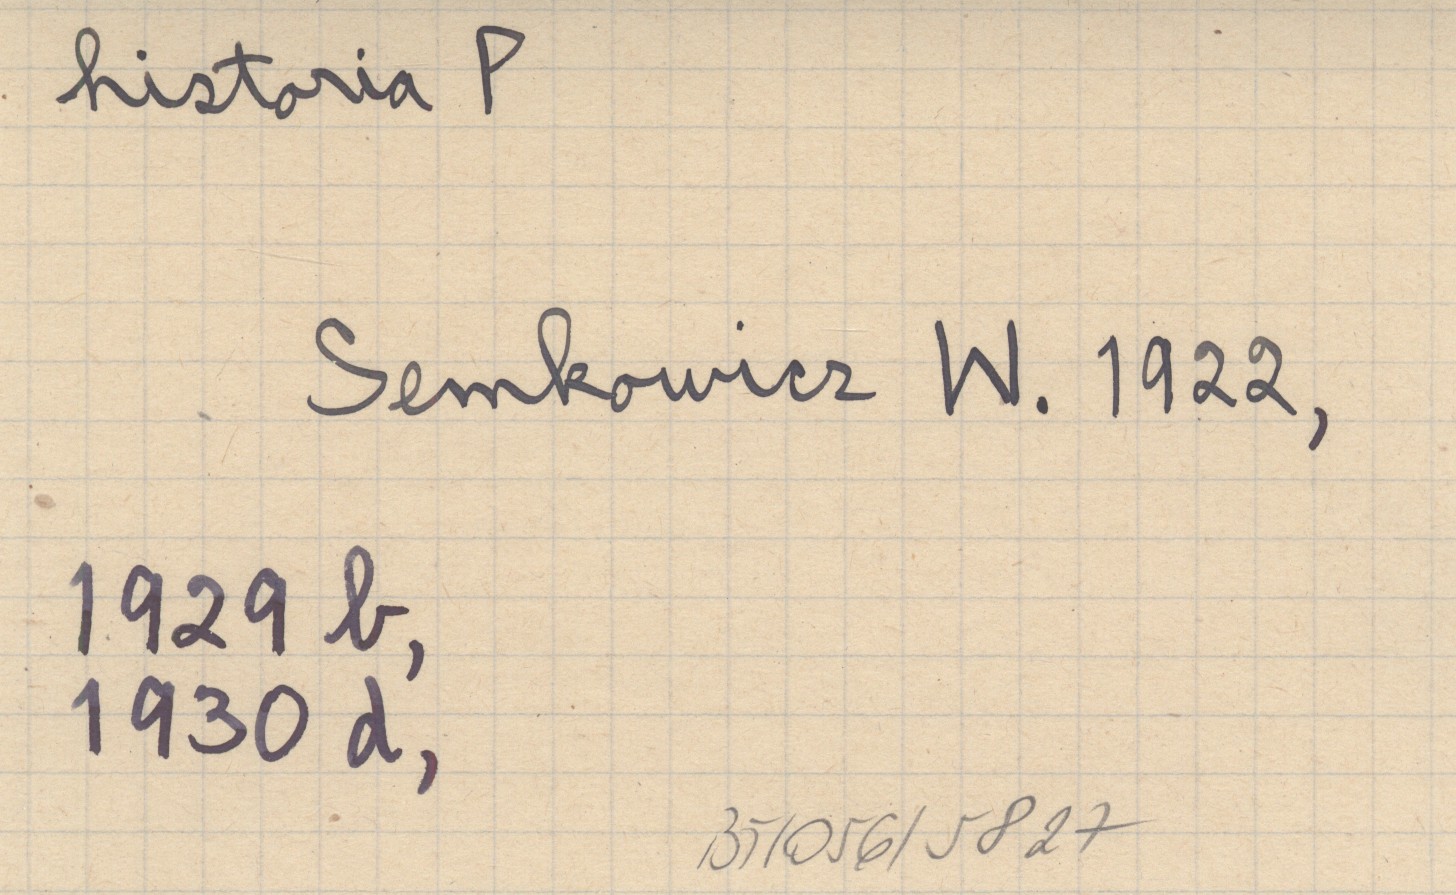 historia P
Semkowicz W. 1922,
1929 b,
1930 d,
B51056/5827